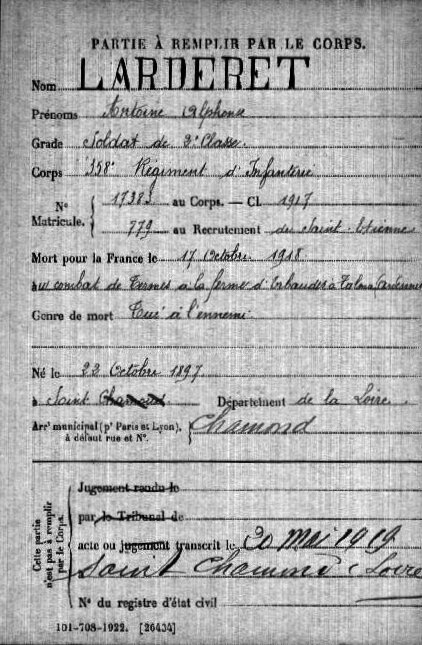 PARTIE À REMPLIR PAR LE CORPS.
Nom LARDERET
Prénoms Antoine Alphonse
Grade Soldat de 2e Classe
Corps 158e Régiment d'Infanterie
No Matricule. { 17383 au Corps. — Cl. 1917
779 au Recrutement de Saint-Etienne
Mort pour la France le 17 Octobre 1918
au combat de Termes à la ferme d' à Talma (Ardennes
Genre de mort Tué à l'ennemi
Né le 23 Octobre 1897
à Saint Chamond Département de la Loire
Arrt municipal (pr Paris et Lyon), à défaut rue et No. { Chamond
Cette partie n'est pas à remplir par le Corps.
Jugement rendu le
par le Tribunal de
acte ou jugement transcrit le 30 Mai 1919
Saint Chamond (Loire
No du registre d'état civil
101-708-1922. [26434]